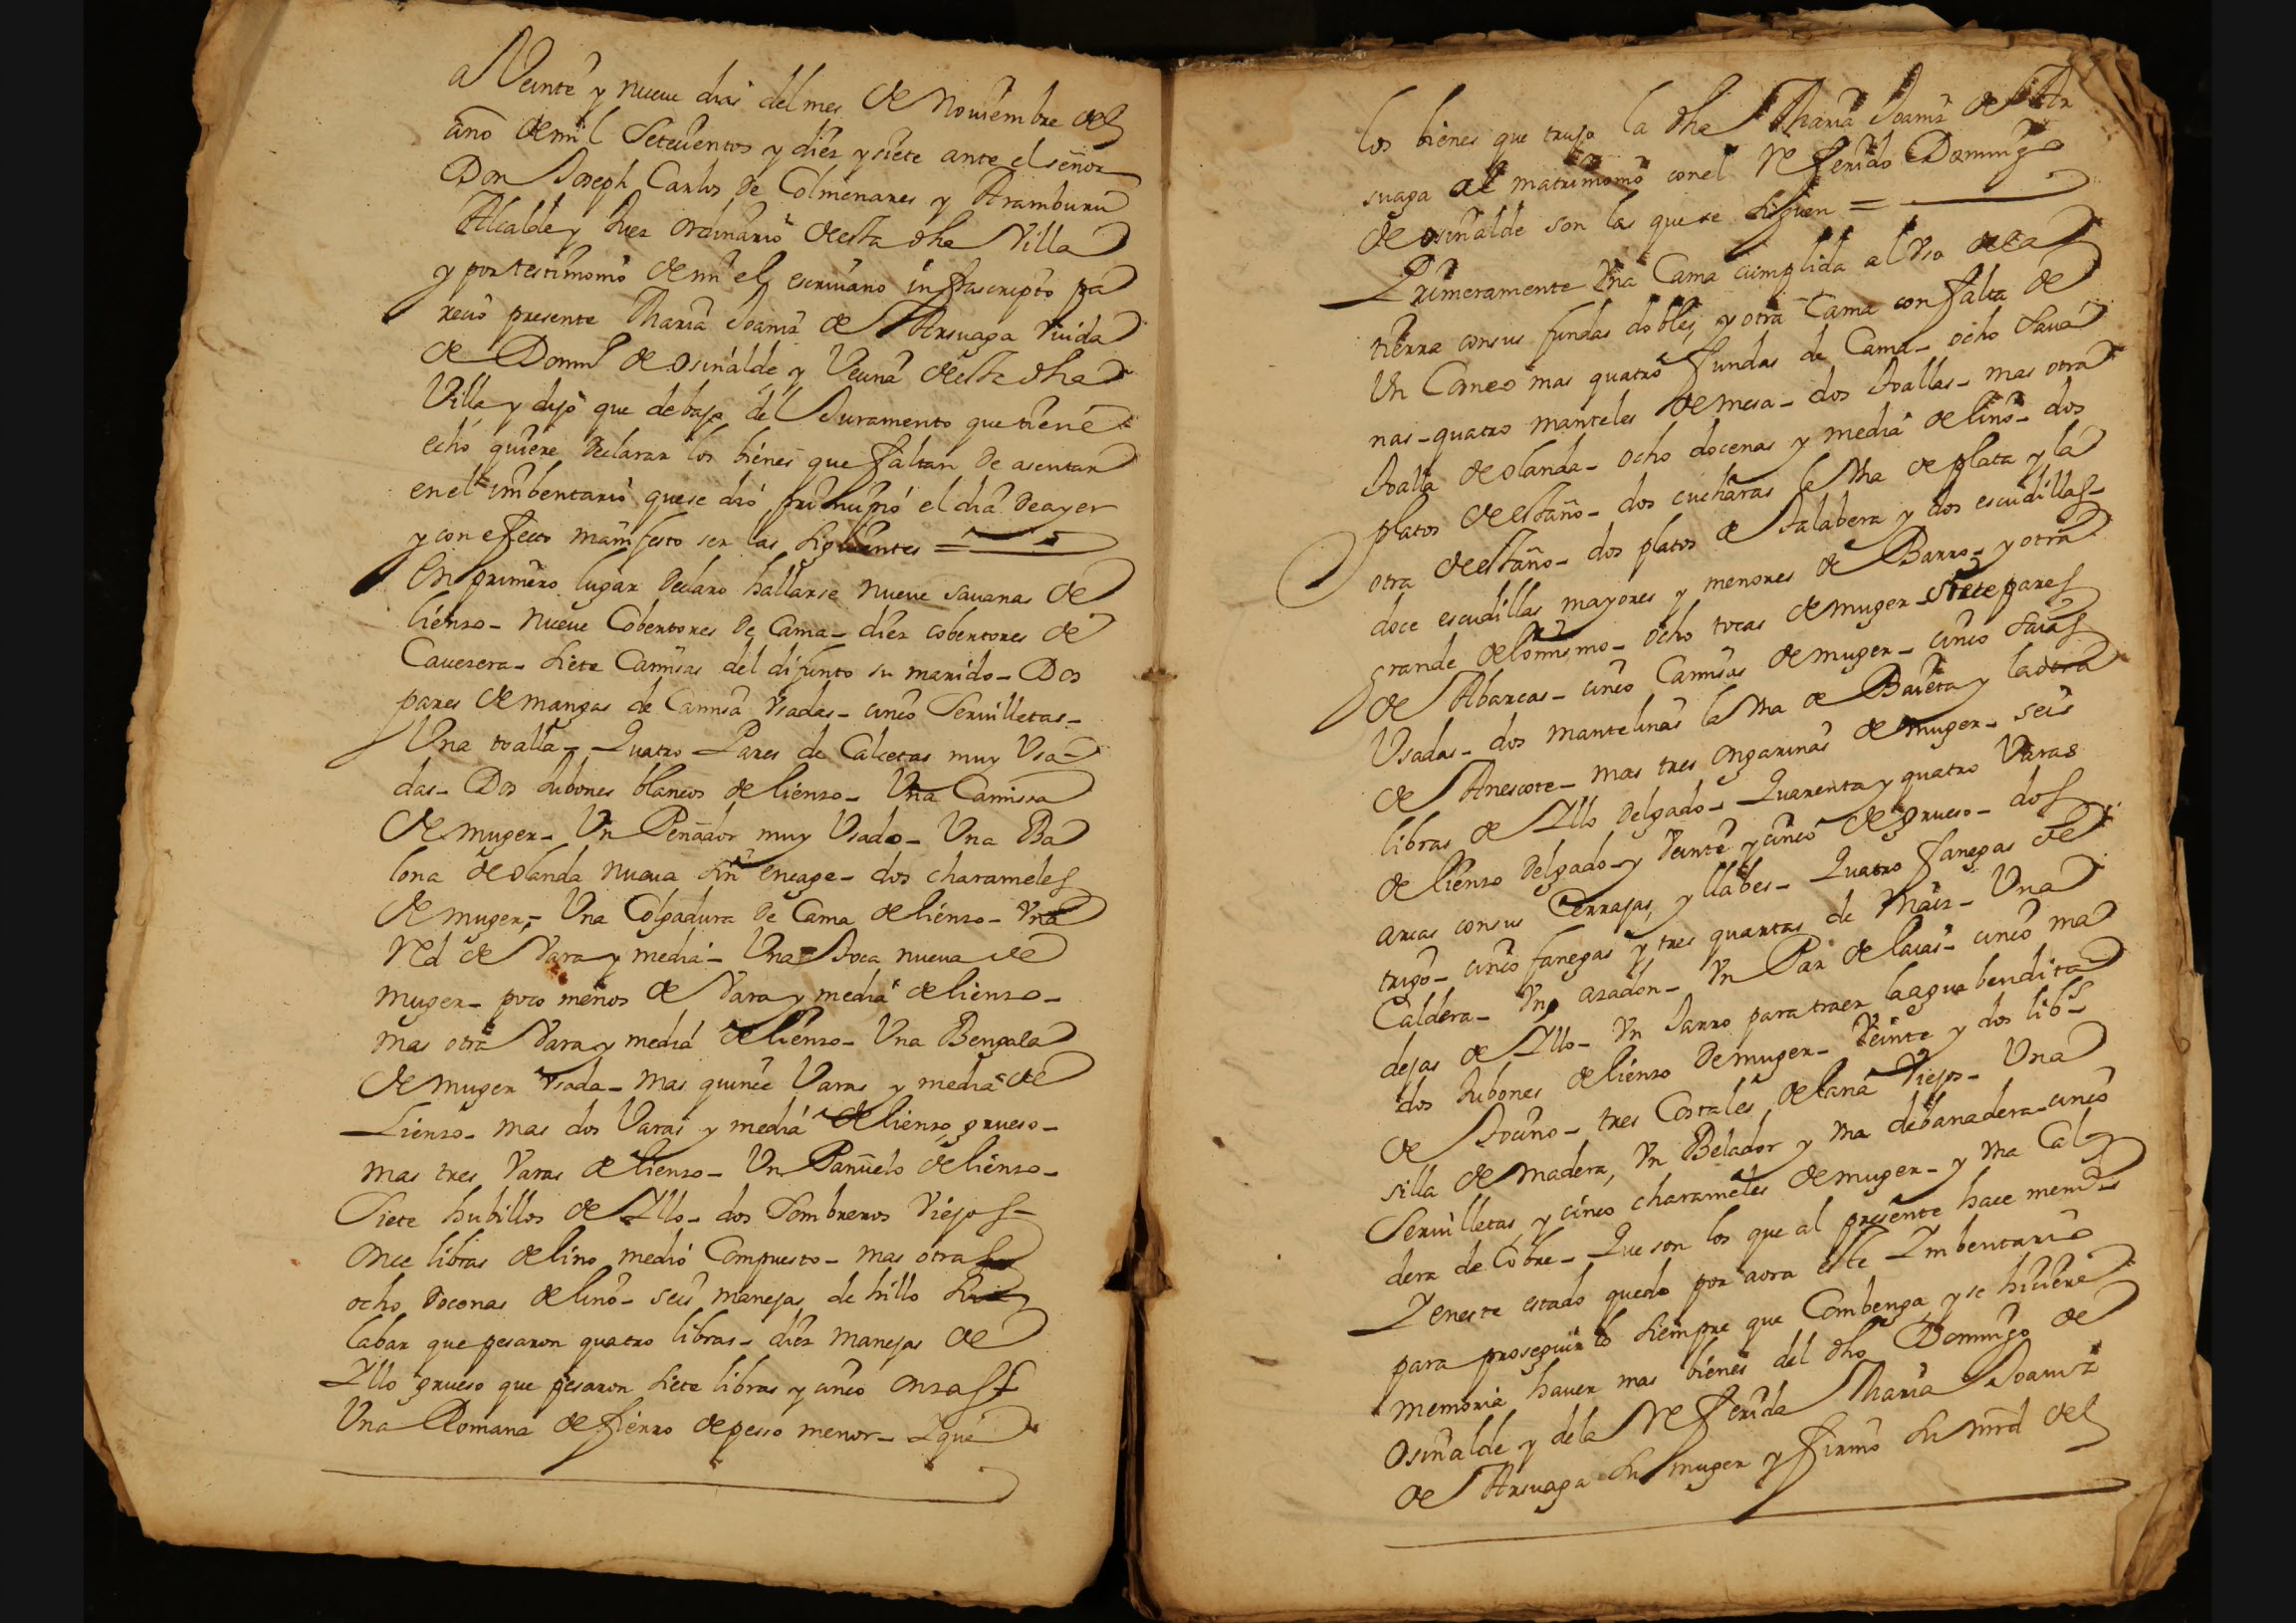 a Veinte y nueve dias del mes de Noviembre del
año de mil Setecientos y diez y siete ante el señor
Don Joseph Carlos de Colmenares y Aramburu
Alcalde y Juez ordinario de esta dha Villa
y por testimonio de mi el escrivano infrascripto pa
recio presente Maria Joaniz de Arsuaga viuda
de Domº de Osinalde y Vecina de esta dha
Villa y dijo que debajo del Juramento que tiene
echo quiere declarar los bienes que faltan de asentar
en el imbentario que se dió principió el dia de ayer
y con efecto manifesto ser las siguientes =
En primero lugar declaro hallarse nueve savanas de
lienzo - nueve Cobertores de Cama - diez cobertores de
Cavezera - siete Camisas del difunto su marido - Dos
pares de mangas de Camisa Vsadas - cinco Servilletas -
Una toalla - Quatro Pares de Calcetas muy Vsa
das - Dos Jubones blancos de lienzo - Una Camissa
de muger - Un Penador muy Vsado - Una Ba
lona de olanda nueva sin encage - dos charameles
de muger - Una Colgadura de Cama de lienzo - Vna
Red de Vara y media - Una toca nueva de
muger - poco menos de Vara y media de lienzo -
mas otra Vara y media de lienzo - Una Bengala
de muger Vsada - mas quince Varas y media de
Lienzo - mas dos Varas y media de lienzo grueso -
mas tres Varas de lienzo - Un Pañuelo de lienzo -
Siete hubillos de Yllo - dos Sombreros Viejos -
Once libras de lino medio Compuesto - mas otras
ocho doconas de lino - seis manejas de hillo sin
labar que pesaron quatro libras - diez manejas de
Yllo grueso que pesaron siete libras y cinco onzas
Una Romana de fierro de pesso menor - Y que
los bienes que trujo la dha Maria Joaniz de Ar
suaga al matrimonio con el Referido Domingo
de osinalde son las que se siguen =
Primeramente Vna Cama cumplida al Vso de la
tierra con sus fundas dobles, y otra Cama con falta de
Un Caneo mas quatro fundas de Cama - ocho sava
nas - quatro manteles de mesa - dos toallas - mas otra
toalla de olanda - ocho docenas y media de lino - dos
platos de estaño - dos cucharas la Vna de plata y la
otra de estaño - dos platos de talabera y dos escudillas -
doce escudillas mayores y menores de Barro - y otra
grande de lo mismo - ocho tocas de muger - siete pares
de Abarcas - cinco Camisas de muger - cinco saias
Usadas - dos mantelinas la Vna de Baieta y la otra
de Anescote - mas tres ongarinas de muger - seis
libras de Yllo delgado - Quarenta y quatro Varas
de lienzo delgado - y Veinte y cinco de grueso - dos
arcas con sus Cerrajas, y llabes - Quatro fanegas de
trigo - cinco fanegas y tres quartas de Maiz - Una
Caldera - Vn azadon - Vn Par de laias - cinco ma
dejas de Yllo - Vn Jarro para traer la agua bendita
dos Jubones de lienzo de muger - Veinte y dos libs
de tocino - tres Costales de lana Viejos - Una
silla de madera, Vn Belador y Vna debanadera - cinco
Servilletas, y cinco charameles de muger - y Vna Cal
dera de Cobre - Que son los que al presente hace memª
Y en este estado quedo por aora este Ymbentario
para proseguirlo siempre que Combenga, y se hiciere
memoria haver mas bienes del dho Domingo de
Osinalde y de la Referida Maria Joaniz
de Arsuaga su muger y firmo su mrd del